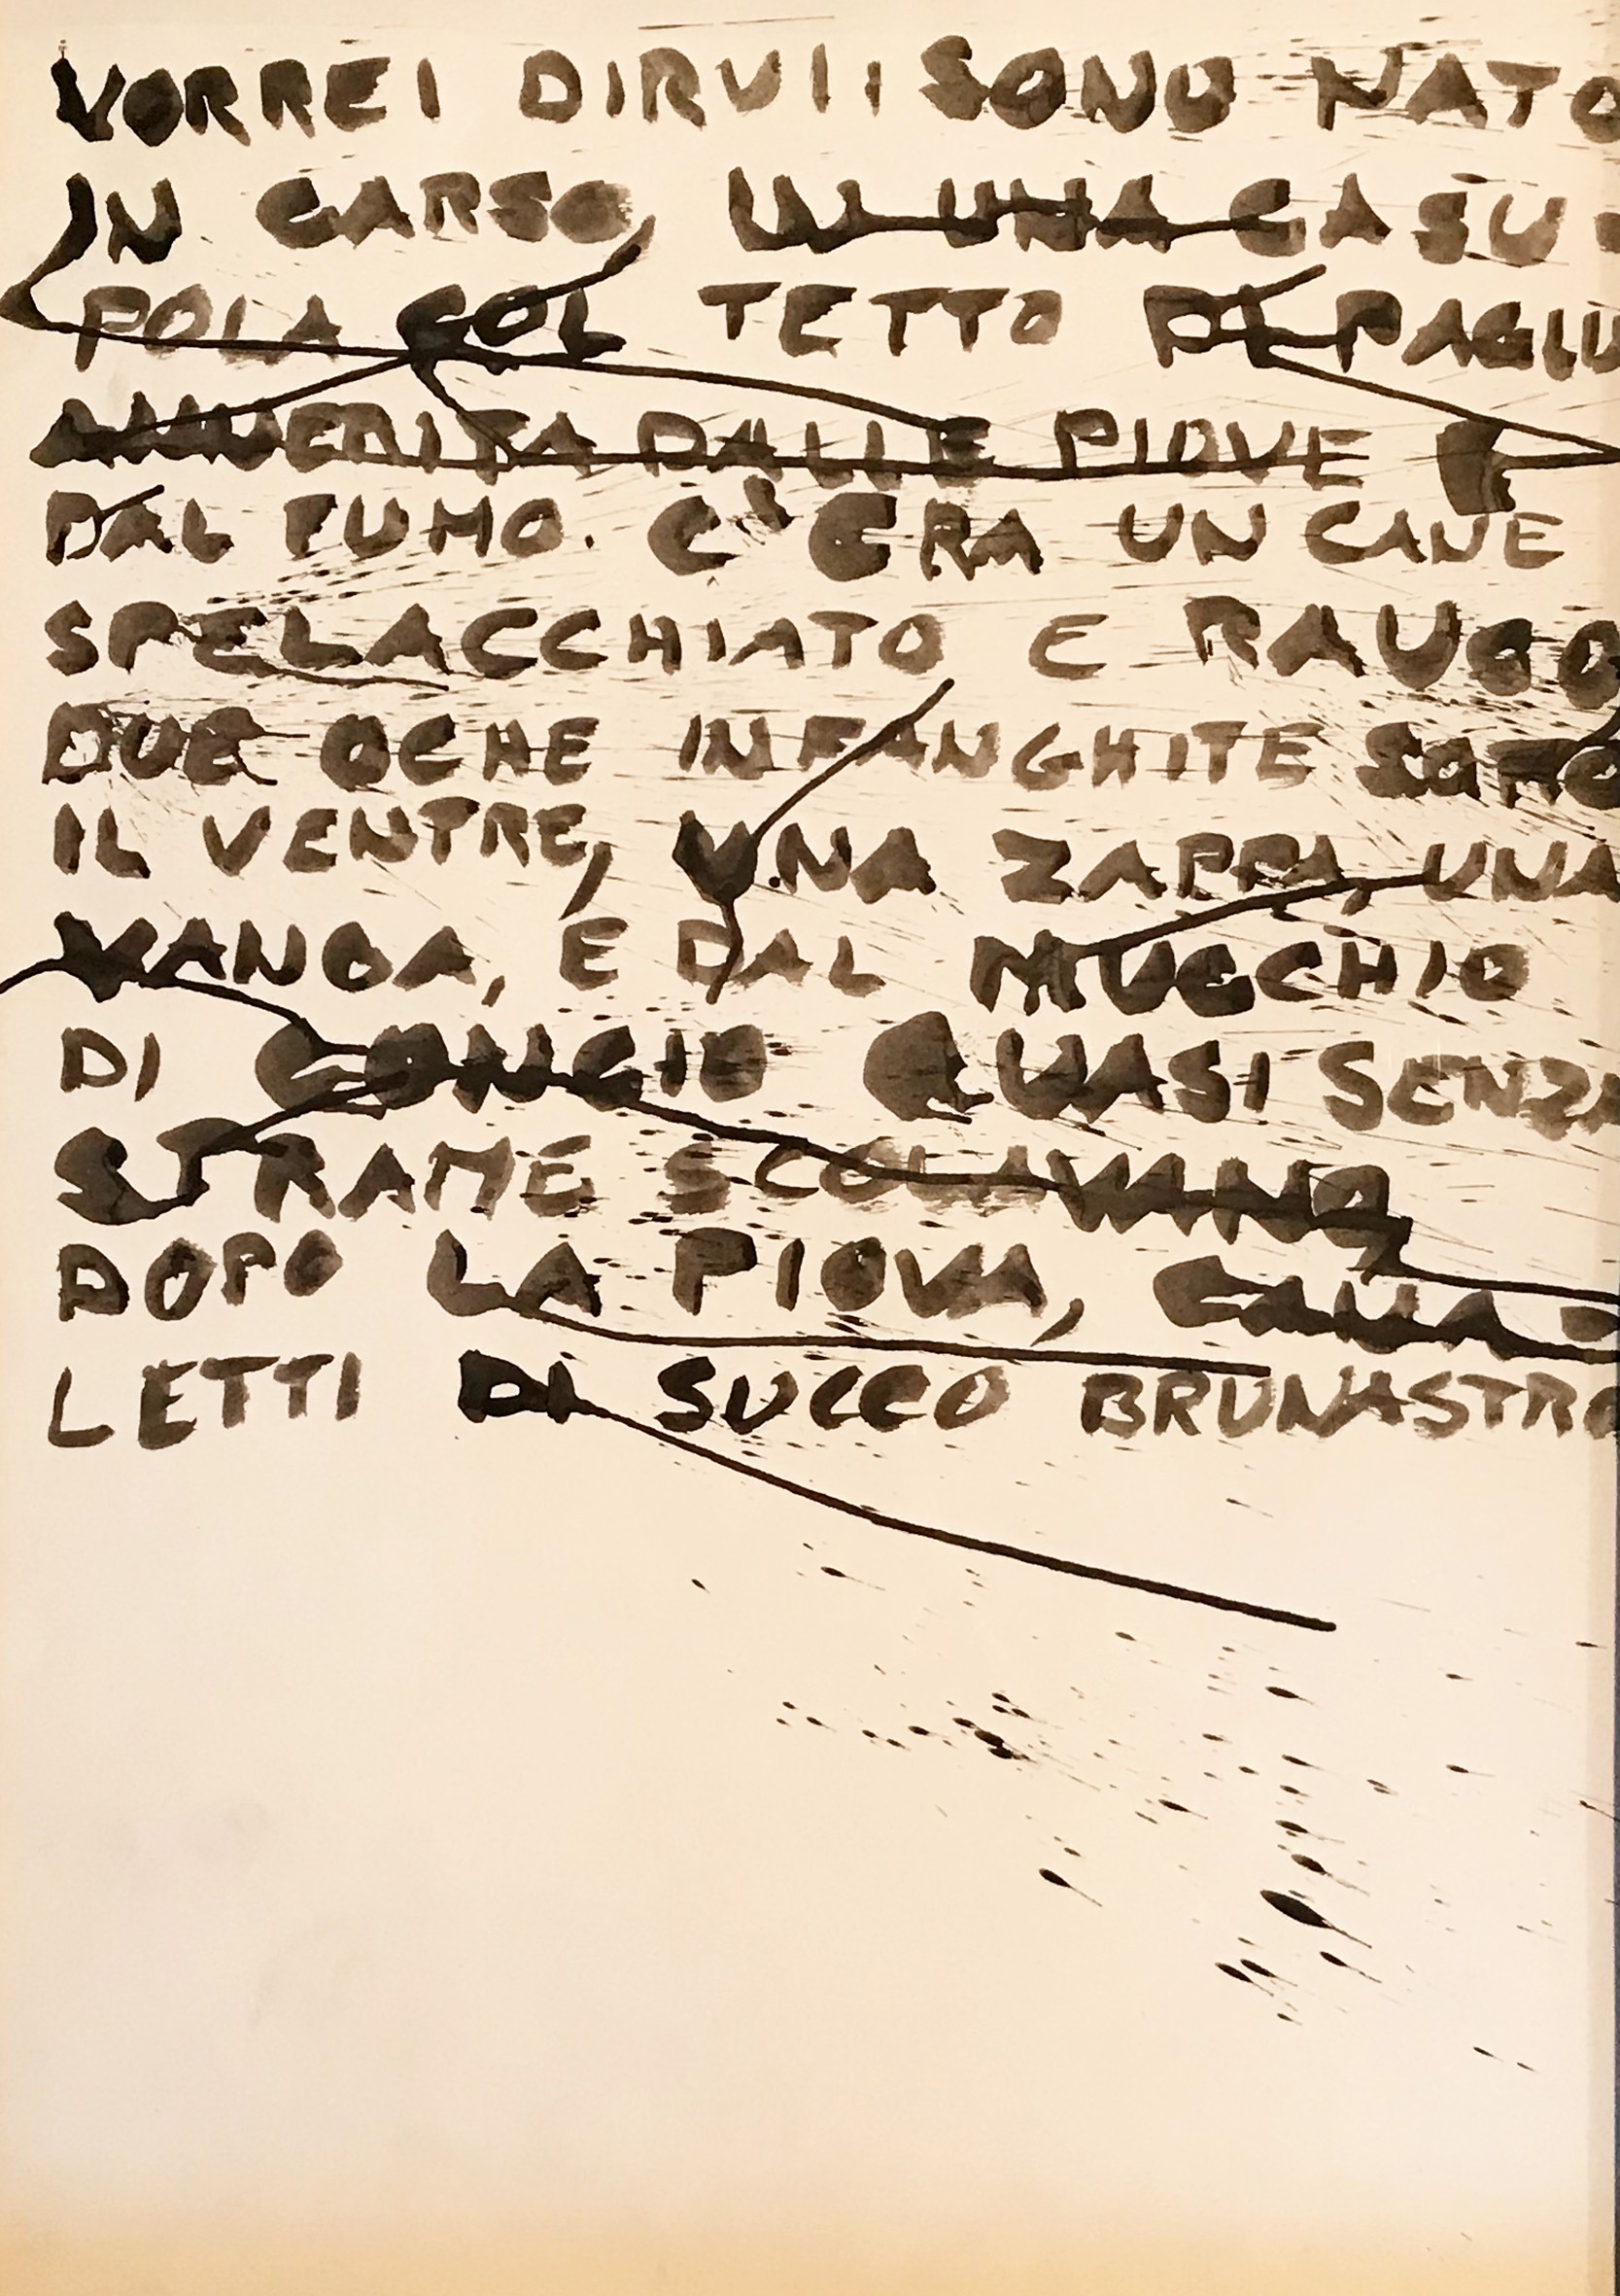 VORREI DIRVI: SONO NATO
IN CARSO, IN UNA CASU-
POLA COL TETTO DI PAGLIA
ANNERITA DALLE PIOVE E
DAL FUMO. C'ERA UN CANE
SPELACCHIATO E RAUCO,
DUE OCHE INFANGHITE SOTTO
IL VENTRE, UNA ZAPPA, UNA
VANGA, E DAL MUCCHIO
DI CONCIO QUASI SENZA
STRAME SCOLAVANO,
DOPO LA PIOVA, CANA-
LETTI DI SUCCO BRUNASTRO